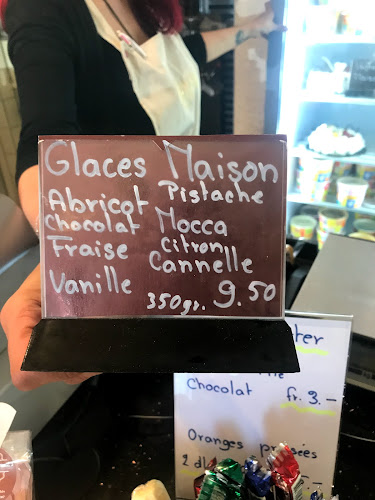 Glaces Maison
Abricot Pistache
Chocolat Mocca
Fraise Citron
Vanille Cannelle
350gr. 9.50
Chocolat fr. 3.–
Oranges pressées
2 dl